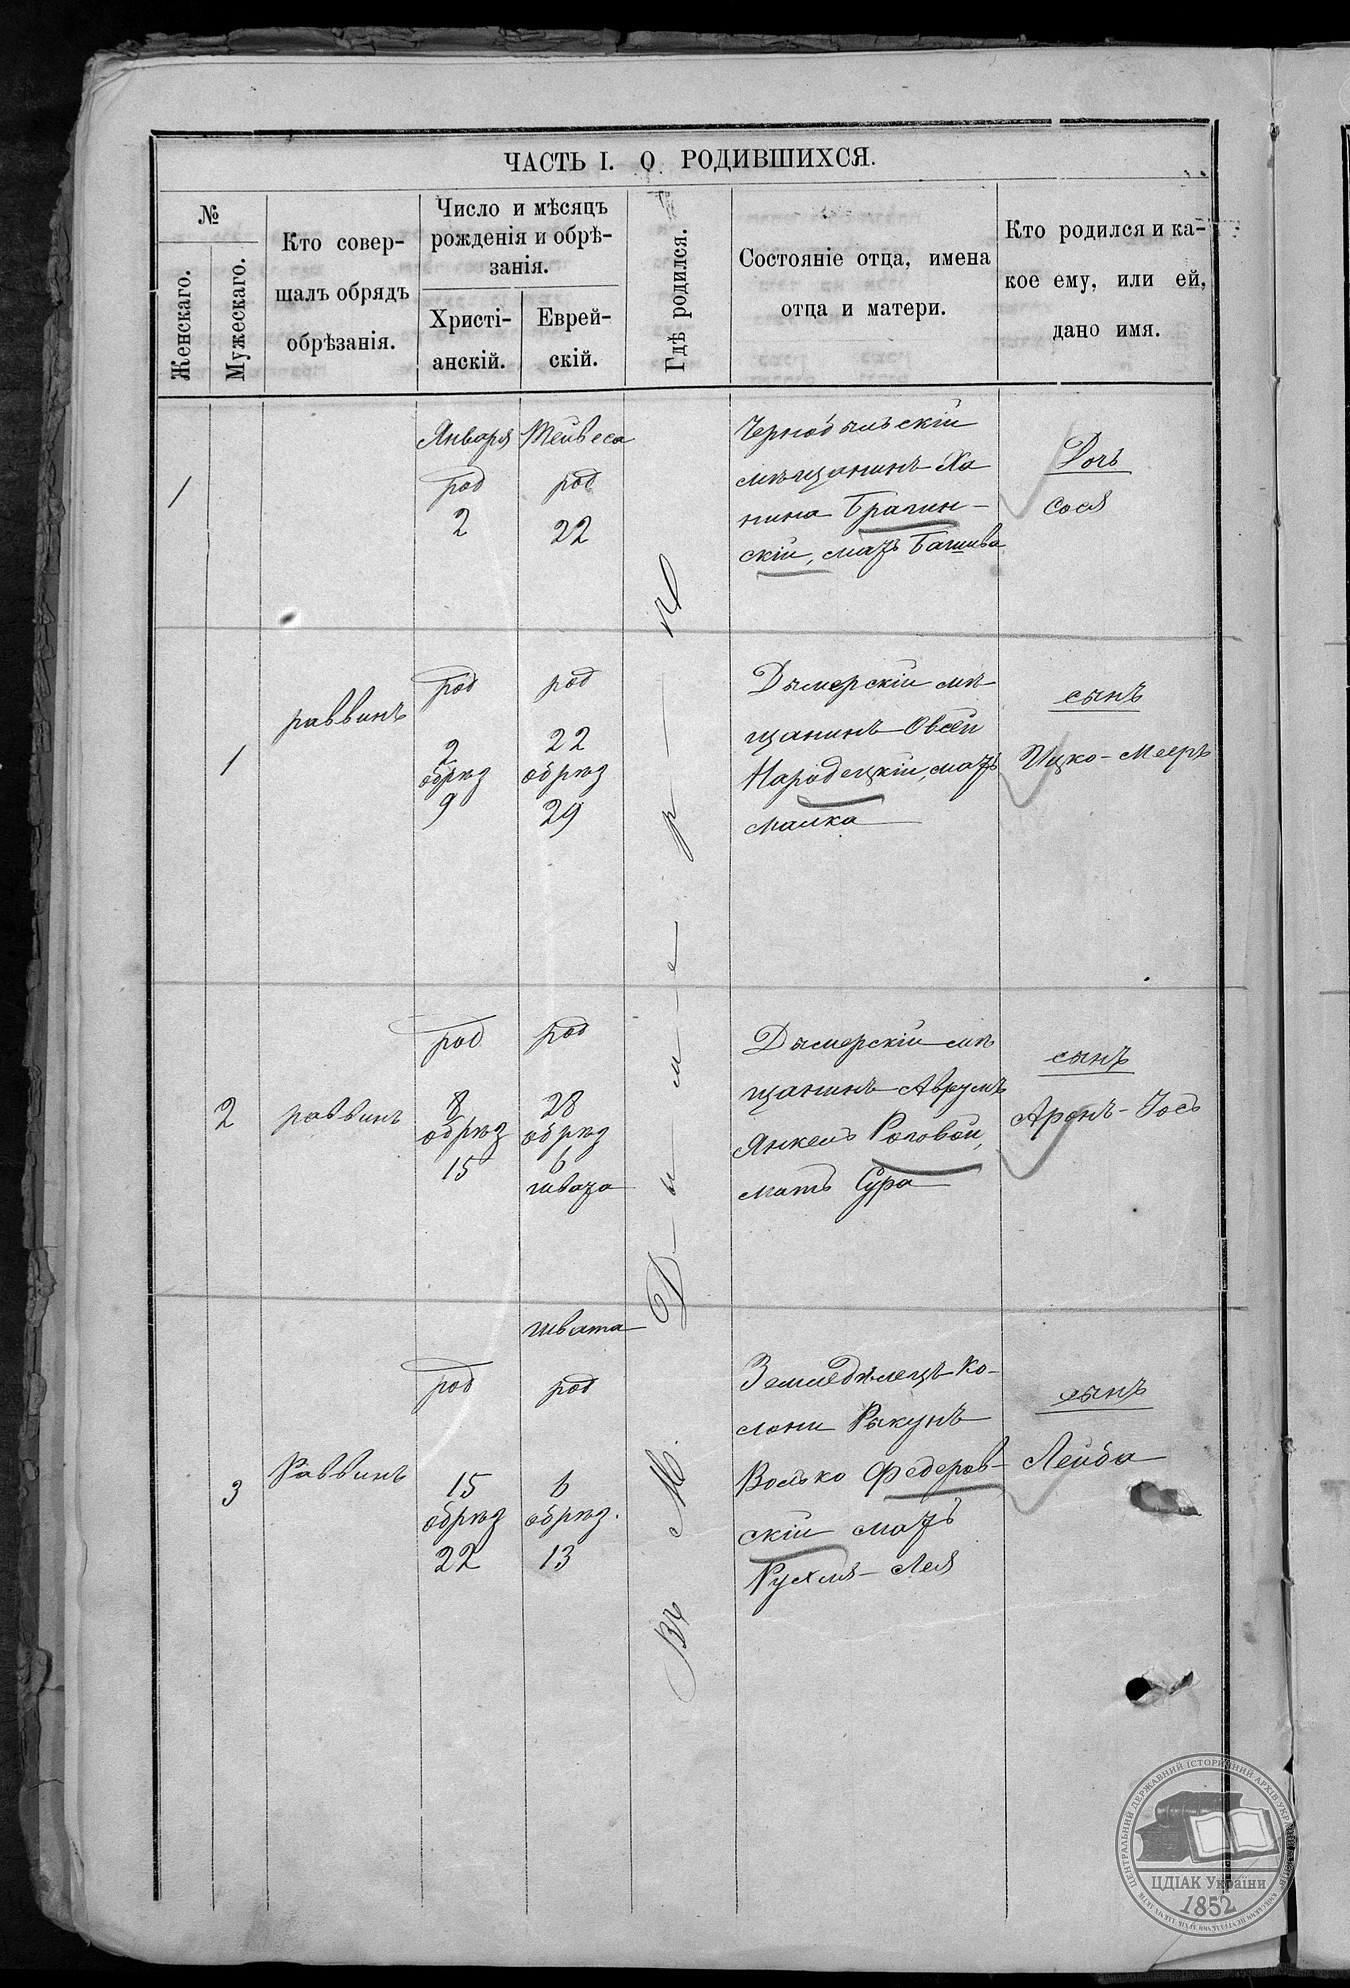 ЧАСТЬ I. О РОДИВШИХСЯ.
№
Женскаго.
Мужескаго.
Кто совер-
шалъ обрядъ
обрѣзанія.
Число и мѣсяцъ
рожденія и обрѣ-
занія.
Христі-
анскій.
Еврей-
скій.
Гдѣ родился.
Состояніе отца, имена
отца и матери.
Кто родился и ка-
кое ему, или ей,
дано имя.
Въ М. Дымерѣ
1
Января
род
2
Тейвеса
род
22
Чернобыльскій
мѣщанинъ Ха
нина Брагин-
скій, мать Башива
Дочь
Сося
1
раввинъ
род
2
обрѣз
9
род
22
обрѣз
29
Дымерскій мѣ
щанинъ Овсей
Народецкій, мать
Малка
сынъ
Ицко-Мееръ
2
раввинъ
род
8
обрѣз
15
род
28
обрѣз
6
швата
Дымерскій мѣ
щанинъ Аврумъ
Янкель Роговой,
мать Сура
сынъ
Аронъ-Іось
3
Раввинъ
род
15
обрѣз
22
швата
род
6
обрѣз.
13
Земледѣлецъ ко-
лони Рыкунъ
Волько Федоров-
скій мать
Рухля-Лея
сынъ
Лейба
ЦЕНТРАЛЬНИЙ ДЕРЖАВНИЙ ІСТОРИЧНИЙ АРХІВ УКРАЇНИ
ЦДІАК України
1852